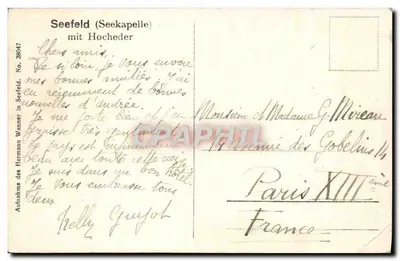 Seefeld (Seekapelle)
mit Hocheder
Chers amis,
De si loin, je vous envoie
mes bonnes amitiés. J'ai
eu récemment de bonnes
nouvelles d'Andrée.
Je me porte bien
grossis très
Le pays est
beau avec toute cette
Je suis dans un bon hôtel
Je vous embrasse tous
deux
Nelly Guyot
Monsieur et Madame G. Mireau
19 avenue des Gobelins
Paris XIIIème
France
Aufnahme des Hermann Wanner in Seefeld. No. 39047
CPARAMA